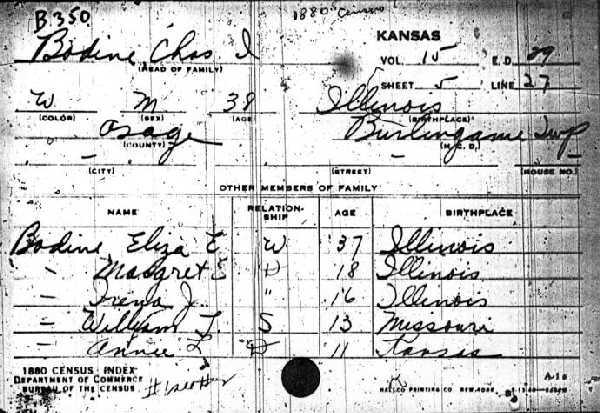 B.350 1880 Census
Bodine, Chas I KANSAS
(HEAD OF FAMILY) VOL. 15 E.D. 29
SHEET 5 LINE 27
W M 38 Illinois
(COLOR) (SEX) (AGE) (BIRTHPLACE)
Osage Burlingame Twp
(COUNTY) (M.C.D.)
– – –
(CITY) (STREET) (HOUSE NO.)
OTHER MEMBERS OF FAMILY
NAME RELATION-SHIP AGE BIRTHPLACE
Bodine Eliza E W 37 Illinois
– Madgret E D 18 Illinois
– Irena J. " 16 Illinois
– William T. S 13 Missouri
– Annie L D 11 Kansas
1880 CENSUS INDEX A-1a
DEPARTMENT OF COMMERCE
BUREAU OF THE CENSUS PRINTING CO.